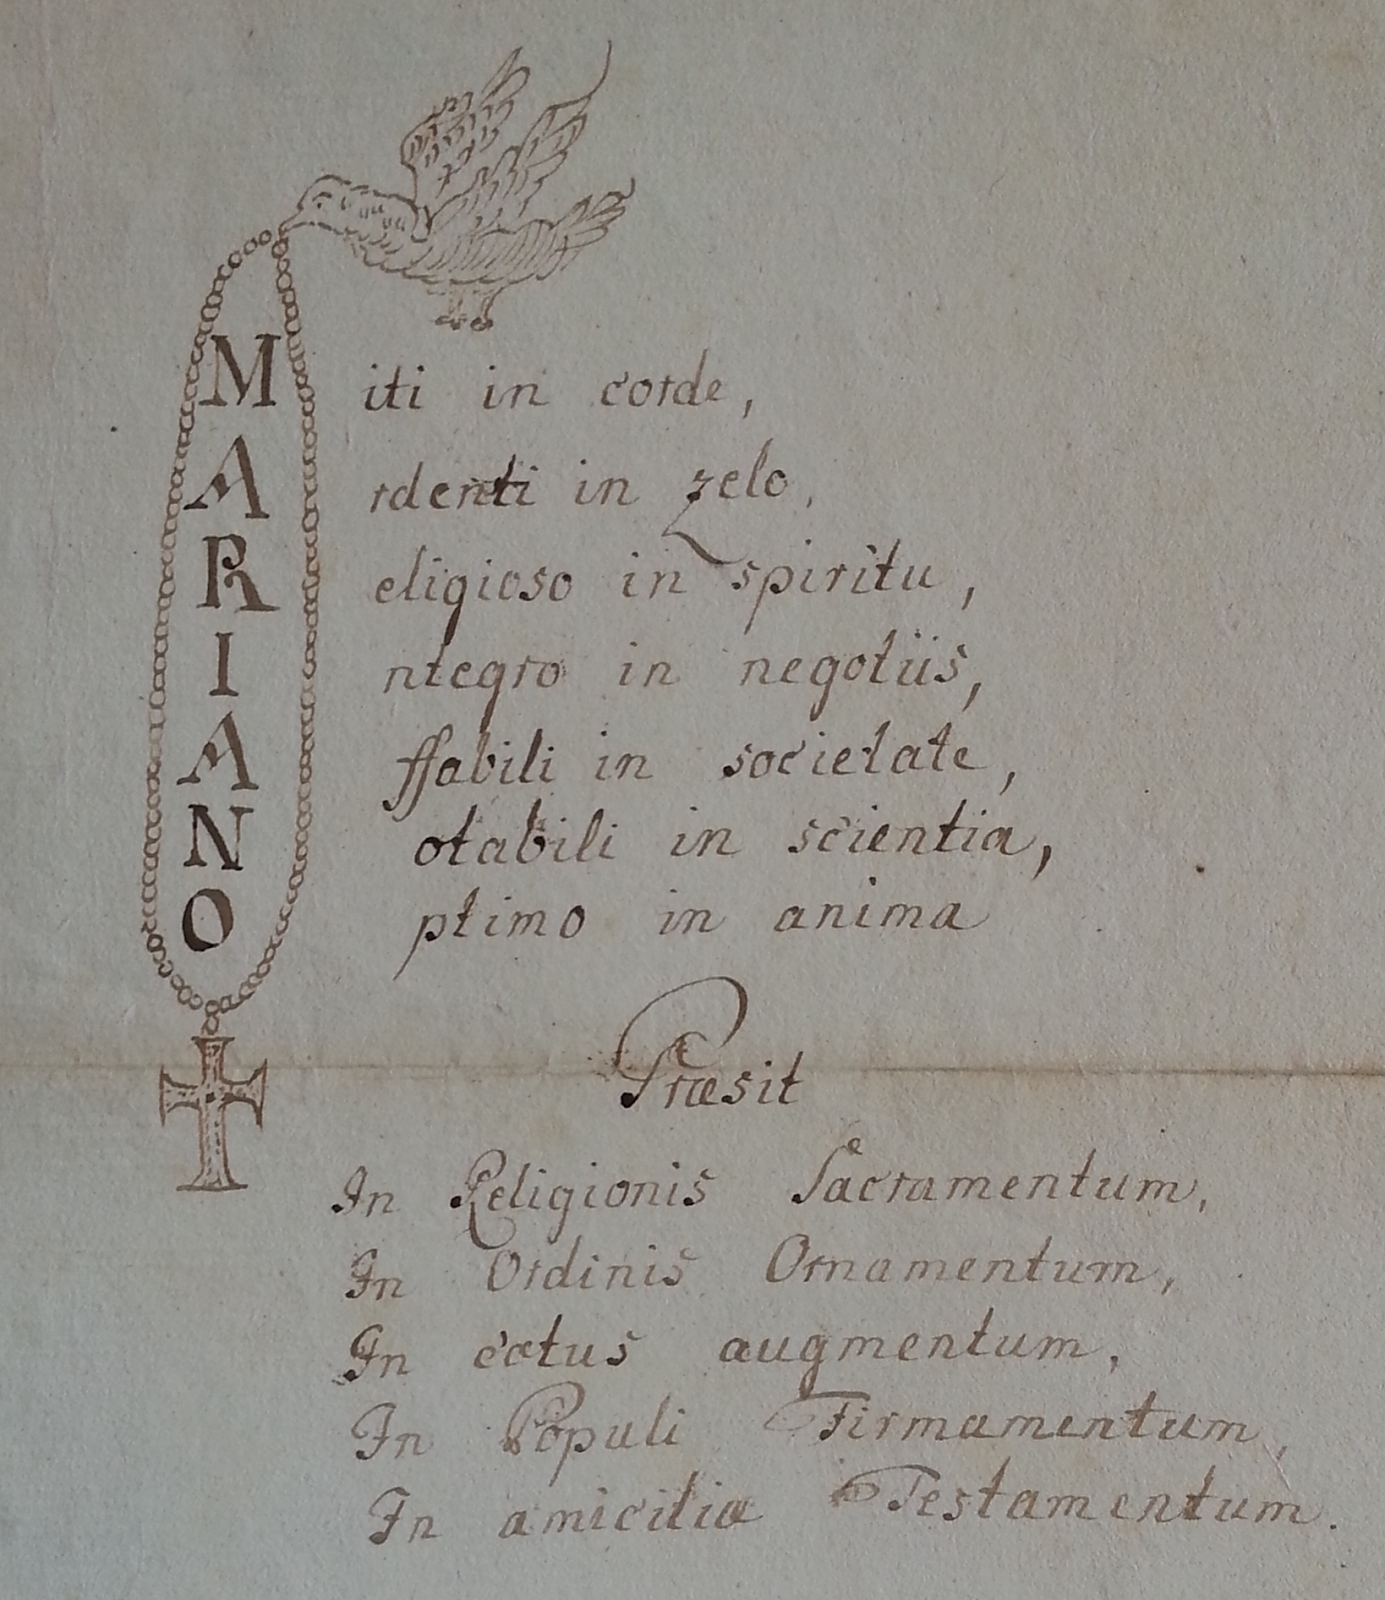 Miti in corde,
Ardenti in zelo,
Religioso in spiritu,
Integro in negotiis,
Affabili in societate,
Notabili in scientia,
Optimo in anima
Præsit
In Religionis Sacramentum,
In Ordinis Ornamentum,
In cœtus augmentum,
In Populi Firmamentum,
In amicitiæ Testamentum.